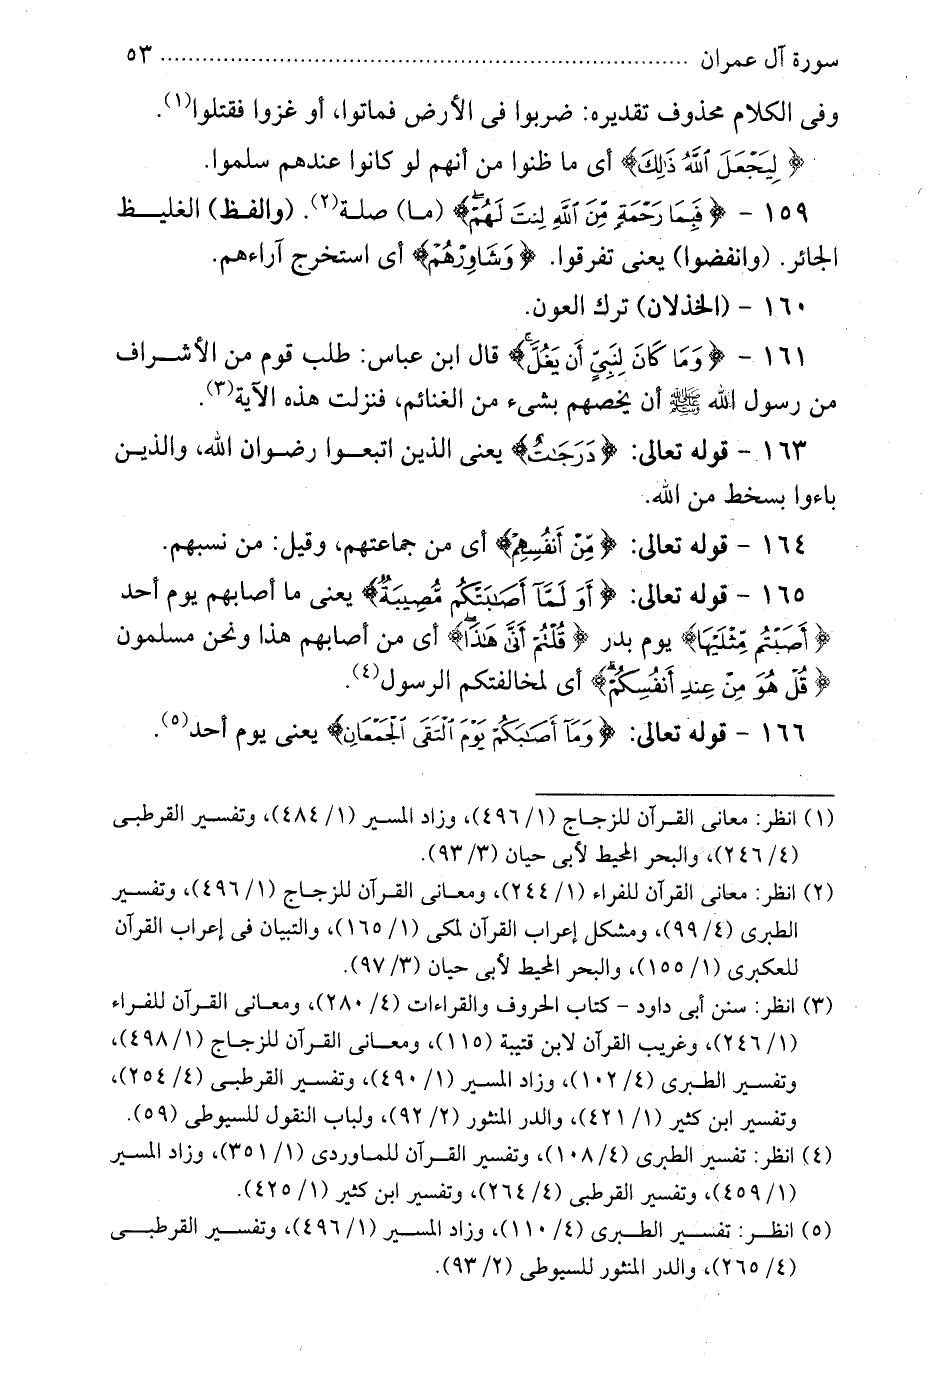 سورة آل عمران ................................................................ ٥٣
وفى الكلام محذوف تقديره: ضربوا فى الأرض فماتوا، أو غزوا فقتلوا(١).
﴿لِيَجْعَلَ ٱللَّهُ ذَٰلِكَ﴾ أى ما ظنوا من أنهم لو كانوا عندهم سلموا.
١٥٩ - ﴿فَبِمَا رَحْمَةٍ مِّنَ ٱللَّهِ لِنتَ لَهُمْ ۖ﴾ (ما) صلة(٢). (والفظ) الغليظ
الجائر. (وانفضوا) يعنى تفرقوا. ﴿وَشَاوِرْهُمْ﴾ أى استخرج آراءهم.
١٦٠ - (الخذلان) ترك العون.
١٦١ - ﴿وَمَا كَانَ لِنَبِيٍّ أَن يَغُلَّ ۚ﴾ قال ابن عباس: طلب قوم من الأشراف
من رسول الله ﷺ أن يخصهم بشىء من الغنائم، فنزلت هذه الآية(٣).
١٦٣ - قوله تعالى: ﴿دَرَجَٰتٌ﴾ يعنى الذين اتبعوا رضوان الله، والذين
باءوا بسخط من الله.
١٦٤ - قوله تعالى: ﴿مِّنْ أَنفُسِهِمْ﴾ أى من جماعتهم، وقيل: من نسبهم.
١٦٥ - قوله تعالى: ﴿أَوَ لَمَّآ أَصَٰبَتْكُم مُّصِيبَةٌ﴾ يعنى ما أصابهم يوم أحد
﴿أَصَبْتُم مِّثْلَيْهَا﴾ يوم بدر ﴿قُلْتُمْ أَنَّىٰ هَٰذَا ۖ﴾ أى من أصابهم هذا ونحن مسلمون
﴿قُلْ هُوَ مِنْ عِندِ أَنفُسِكُمْ ۗ﴾ أى لمخالفتكم الرسول(٤).
١٦٦ - قوله تعالى: ﴿وَمَآ أَصَٰبَكُمْ يَوْمَ ٱلْتَقَى ٱلْجَمْعَانِ﴾ يعنى يوم أحد(٥).
(١) انظر: معانى القرآن للزجاج (١/ ٤٩٦)، وزاد المسير (١/ ٤٨٤)، وتفسير القرطبى
(٤/ ٢٤٦)، والبحر المحيط لأبى حيان (٣/ ٩٣).
(٢) انظر: معانى القرآن للفراء (١/ ٢٤٤)، ومعانى القرآن للزجاج (١/ ٤٩٦)، وتفسير
الطبرى (٤/ ٩٩)، ومشكل إعراب القرآن لمكى (١/ ١٦٥)، والتبيان فى إعراب القرآن
للعكبرى (١/ ١٥٥)، والبحر المحيط لأبى حيان (٣/ ٩٧).
(٣) انظر: سنن أبى داود - كتاب الحروف والقراءات (٤/ ٢٨٠)، ومعانى القرآن للفراء
(١/ ٢٤٦)، وغريب القرآن لابن قتيبة (١١٥)، ومعانى القرآن للزجاج (١/ ٤٩٨)،
وتفسير الطبرى (٤/ ١٠٢)، وزاد المسير (١/ ٤٩٠)، وتفسير القرطبى (٤/ ٢٥٤)،
وتفسير ابن كثير (١/ ٤٢١)، والدر المنثور (٢/ ٩٢)، ولباب النقول للسيوطى (٥٩).
(٤) انظر: تفسير الطبرى (٤/ ١٠٨)، وتفسير القرآن للماوردى (١/ ٣٥١)، وزاد المسير
(١/ ٤٥٩)، وتفسير القرطبى (٤/ ٢٦٤)، وتفسير ابن كثير (١/ ٤٢٥).
(٥) انظر: تفسير الطبرى (٤/ ١١٠)، وزاد المسير (١/ ٤٩٦)، وتفسير القرطبى
(٤/ ٢٦٥)، والدر المنثور للسيوطى (٢/ ٩٣).